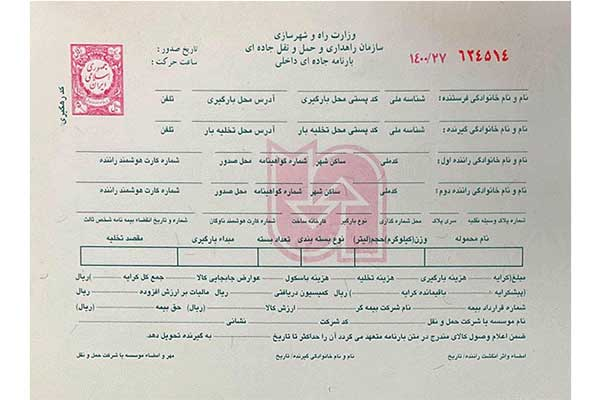 وزارت راه و شهرسازی
سازمان راهداری و حمل و نقل جاده ای
بارنامه جاده ای داخلی
۶۲۴۵۱۴
۱۴۰۰/۲۷
تاریخ صدور :
ساعت حرکت :
جمهوری اسلامی ایران
کد رهگیری :
نام و نام خانوادگی فرستنده : شناسه ملی کد پستی محل بارگیری آدرس محل بارگیری تلفن
نام و نام خانوادگی گیرنده : شناسه ملی کد پستی محل تخلیه بار آدرس محل تخلیه بار تلفن
نام و نام خانوادگی راننده اول : کدملی ساکن شهر شماره گواهینامه محل صدور شماره کارت هوشمند راننده
نام و نام خانوادگی راننده دوم : کدملی ساکن شهر شماره گواهینامه محل صدور شماره کارت هوشمند راننده
شماره پلاک وسیله نقلیه سری پلاک محل شماره گذاری نوع بارگیر کارخانه ساخت شماره کارت هوشمند ناوگان شماره و تاریخ انقضاء بیمه نامه شخص ثالث
نام محموله وزن(کیلوگرم)حجم(لیتر) نوع بسته بندی تعداد بسته مبداء بارگیری مقصد تخلیه
مبلغ(کرایه هزینه بارگیری هزینه تخلیه هزینه باسکول عوارض جابجایی کالا جمع کل کرایه (ریال
(پیشکرایه باقیمانده کرایه (ریال) کمیسیون دریافتی (ریال مالیات بر ارزش افزوده (ریال
شماره قرارداد بیمه نام شرکت بیمه گر ارزش کالا (ریال) حق بیمه (ریال
نام موسسه یا شرکت حمل و نقل کد شرکت نشانی
ضمن اعلام وصول کالای مندرج در متن بارنامه متعهد می گردد آن را حداکثر تا تاریخ به گیرنده تحویل دهد.
امضاء واثر انگشت راننده / تاریخ نام و نام خانوادگی گیرنده / تاریخ مهر و امضاء موسسه یا شرکت حمل و نقل